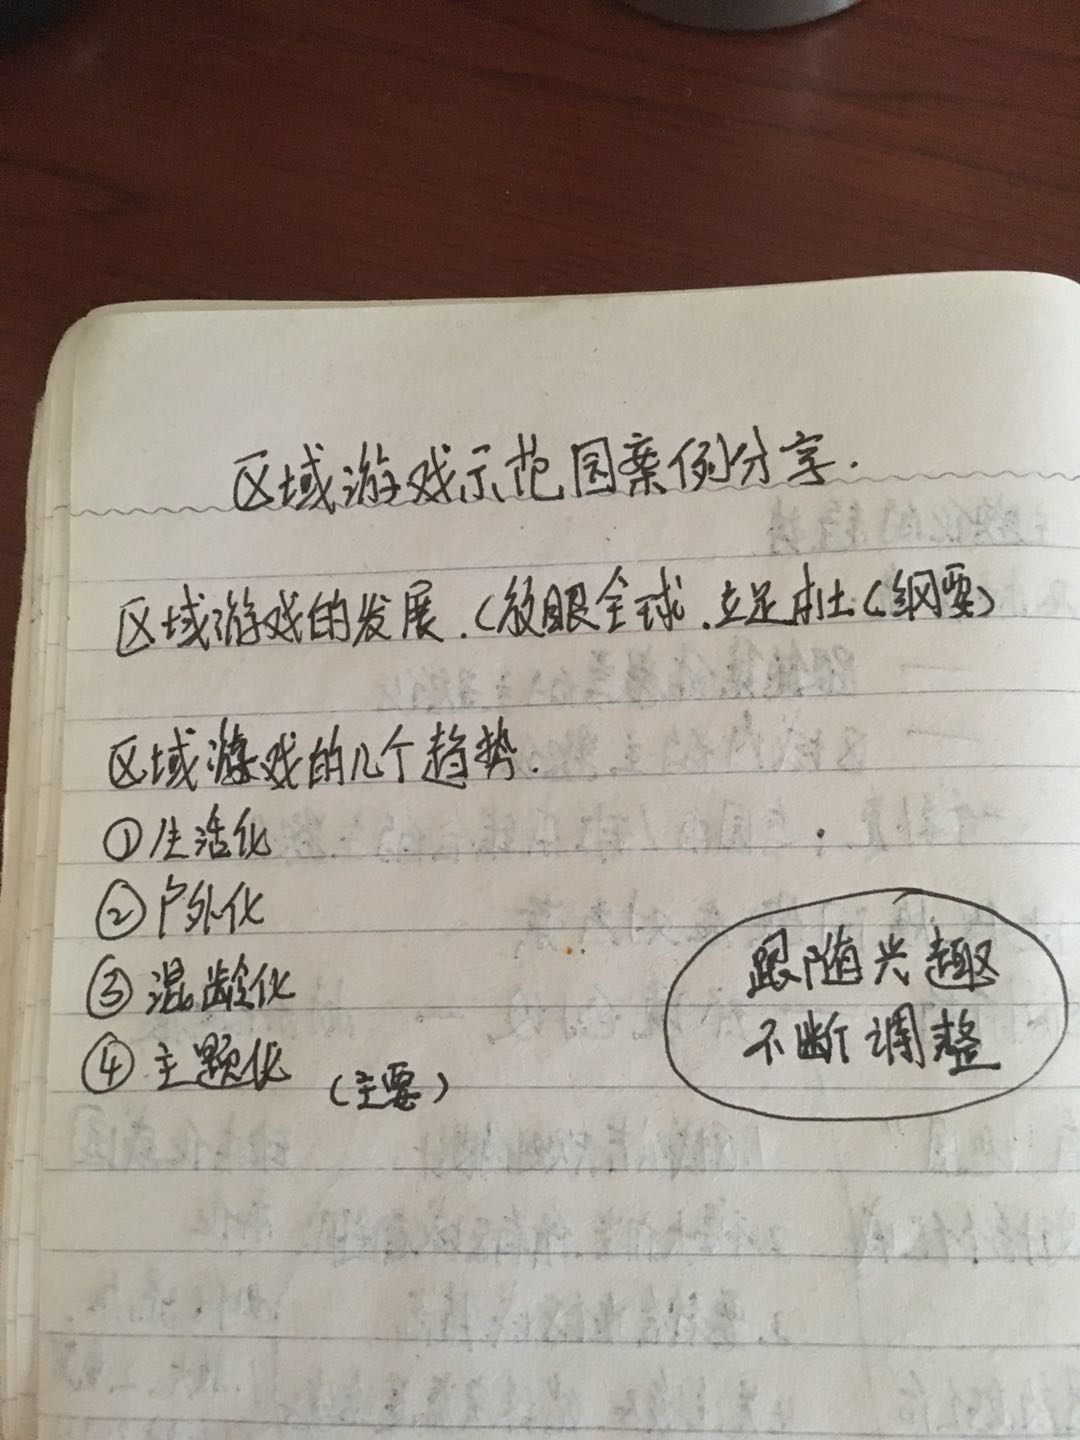 区域游戏示范园案例分享.
区域游戏的发展.(放眼全球.立足本土(纲要)
区域游戏的几个趋势.
①生活化
②户外化
③混龄化
④主题化 (主要)
跟随兴趣
不断调整